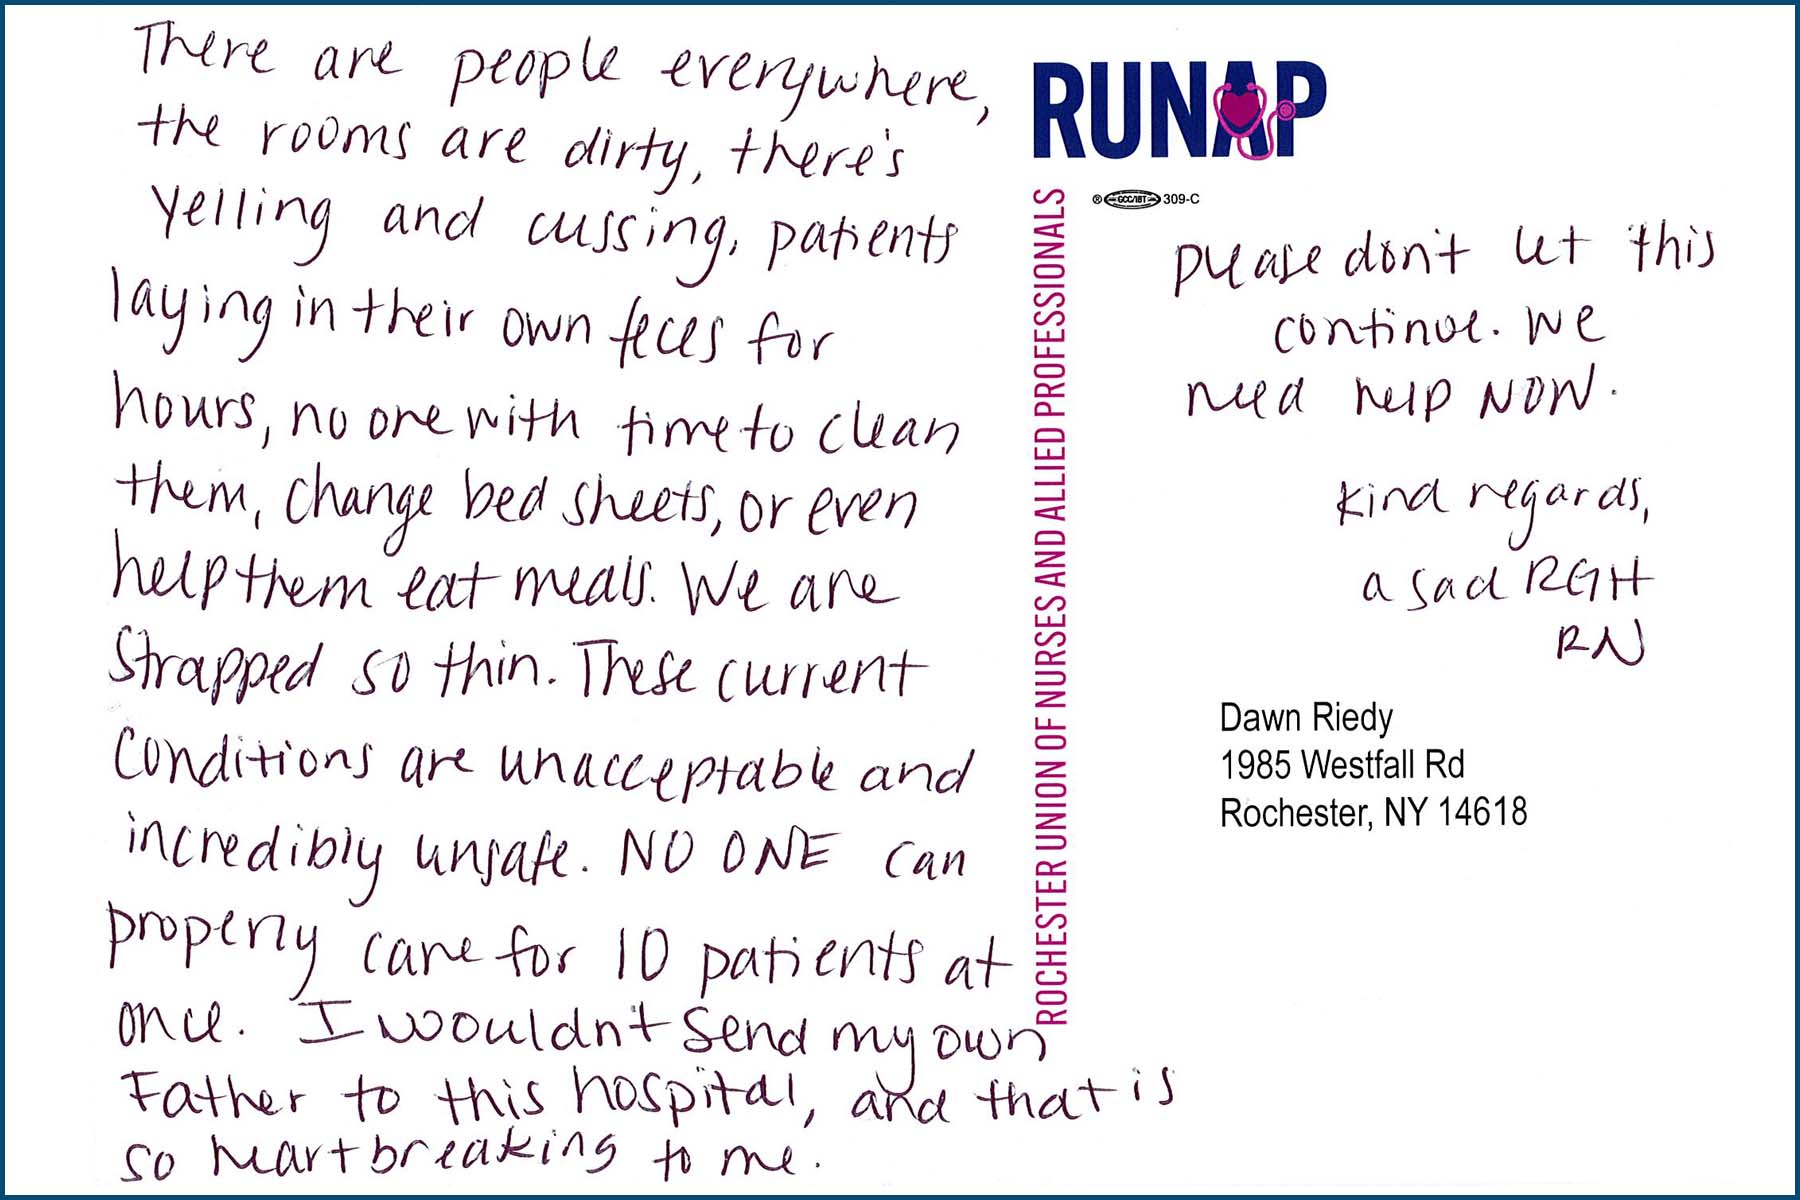 There are people everywhere,
the rooms are dirty, there's
yelling and cussing, patients
laying in their own feces for
hours, no one with time to clean
them, change bed sheets, or even
help them eat meals. We are
strapped so thin. These current
conditions are unacceptable and
incredibly unsafe. NO ONE can
properly care for 10 patients at
once. I wouldn't send my own
Father to this hospital, and that is
so heartbreaking to me.
RUNAP
ROCHESTER UNION OF NURSES AND ALLIED PROFESSIONALS
® GCC/IBT 309-C
please don't let this
continue. We
need help NOW.
kind regards,
a sad RGH
RN
Dawn Riedy
1985 Westfall Rd
Rochester, NY 14618